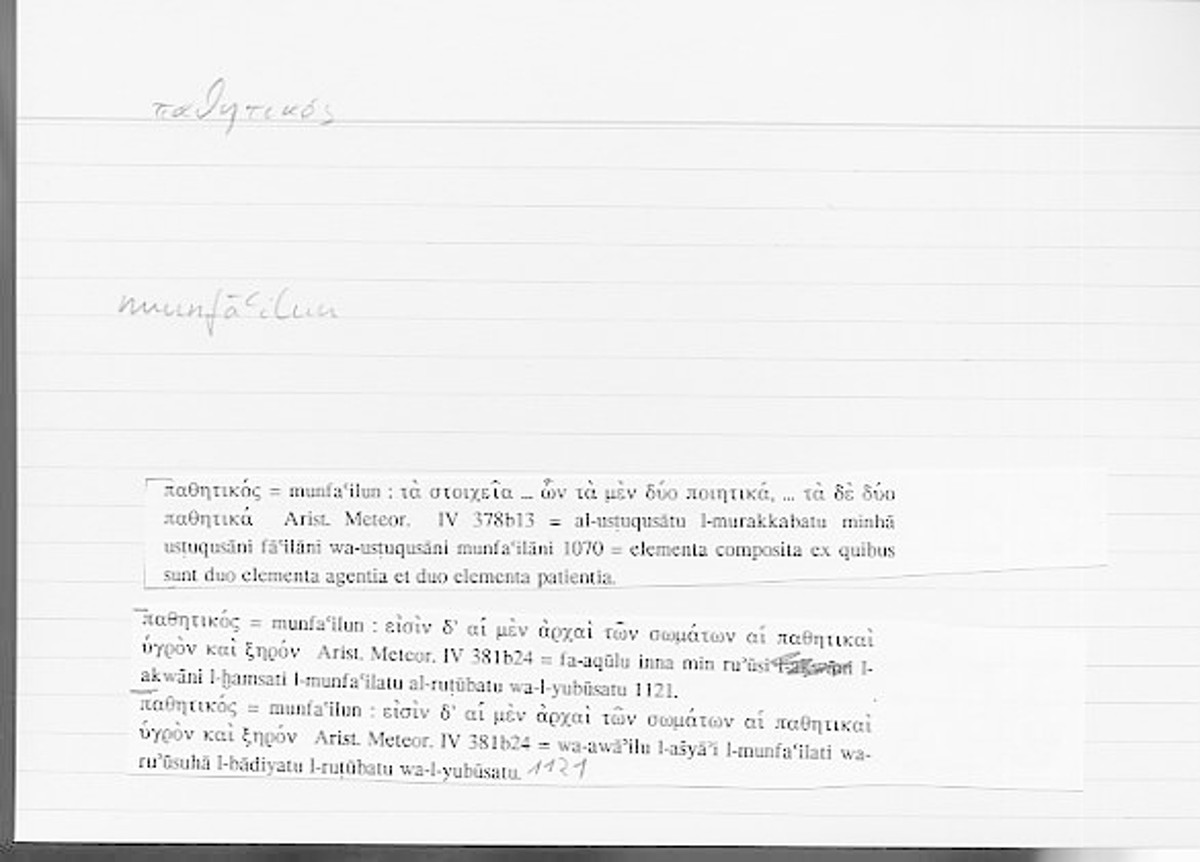 παθητικός
munfāʿilun
παθητικός = munfaʿilun : τὰ στοιχεῖα ... ὧν τὰ μὲν δύο ποιητικά, ... τὰ δὲ δύο
παθητικά Arist. Meteor. IV 378b13 = al-usṭuqusātu l-murakkabatu minhā
usṭuqusāni fāʿilāni wa-usṭuqusāni munfaʿilāni 1070 = elementa composita ex quibus
sunt duo elementa agentia et duo elementa patientia.
παθητικός = munfaʿilun : εἰσὶν δ' αἱ μὲν ἀρχαὶ τῶν σωμάτων αἱ παθητικαὶ
ὑγρὸν καὶ ξηρόν Arist. Meteor. IV 381b24 = fa-aqūlu inna min ruʾūsi l-
akwāni l-ḫamsati l-munfaʿilatu al-ruṭūbatu wa-l-yubūsatu 1121.
παθητικός = munfaʿilun : εἰσὶν δ' αἱ μὲν ἀρχαὶ τῶν σωμάτων αἱ παθητικαὶ
ὑγρὸν καὶ ξηρόν Arist. Meteor. IV 381b24 = wa-awāʾilu l-ašyāʾi l-munfaʿilati wa-
ruʾūsuhā l-bādiyatu l-ruṭūbatu wa-l-yubūsatu. 1121